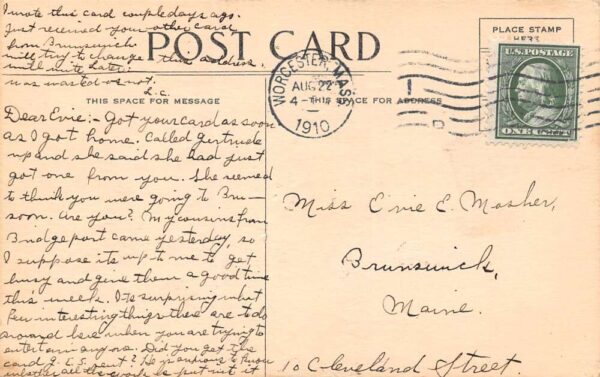 I wrote this card couple days ago.
Just received your other card
from Brunswick
will try to change this address.
will write later.
was wasted or not.
L.C.
POST CARD
PLACE STAMP
HERE
U.S. POSTAGE
ONE CENT
WORCESTER, MASS.
AUG 22
4-
1910
THIS SPACE FOR MESSAGE
THIS SPACE FOR ADDRESS
Dear Evie:- Got your card as soon
as I got home. Called Gertrude
up and she said she had just
got one from you. She seemed
to think you were going to Bru-
soon. Are you? My cousins from
Bridgeport came yesterday, so
I suppose its up to me to get
busy and give them a good time
this week. Its surprising what
few interesting things there are to do
around here when you are trying to
entertain anyone. Did you get the
card G.C.S. sent? He is anxious to know
whether all the work he put into it
Miss Evie E. Mosher,
Brunswick,
Maine.
10 Cleveland Street.